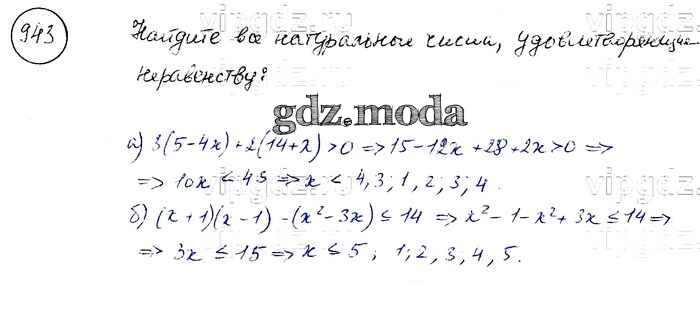 943
Найдите все натуральные числа, удовлетворяющие
неравенству:
gdz.moda
а) 3(5-4x)+2(14+x)>0 => 15-12x+28+2x>0 =>
=> 10x ≤ 43 => x < 4,3; 1, 2, 3, 4.
б) (x+1)(x-1)-(x²-3x) ≤ 14 => x²-1-x²+3x ≤ 14 =>
=> 3x ≤ 15 => x ≤ 5; 1, 2, 3, 4, 5.